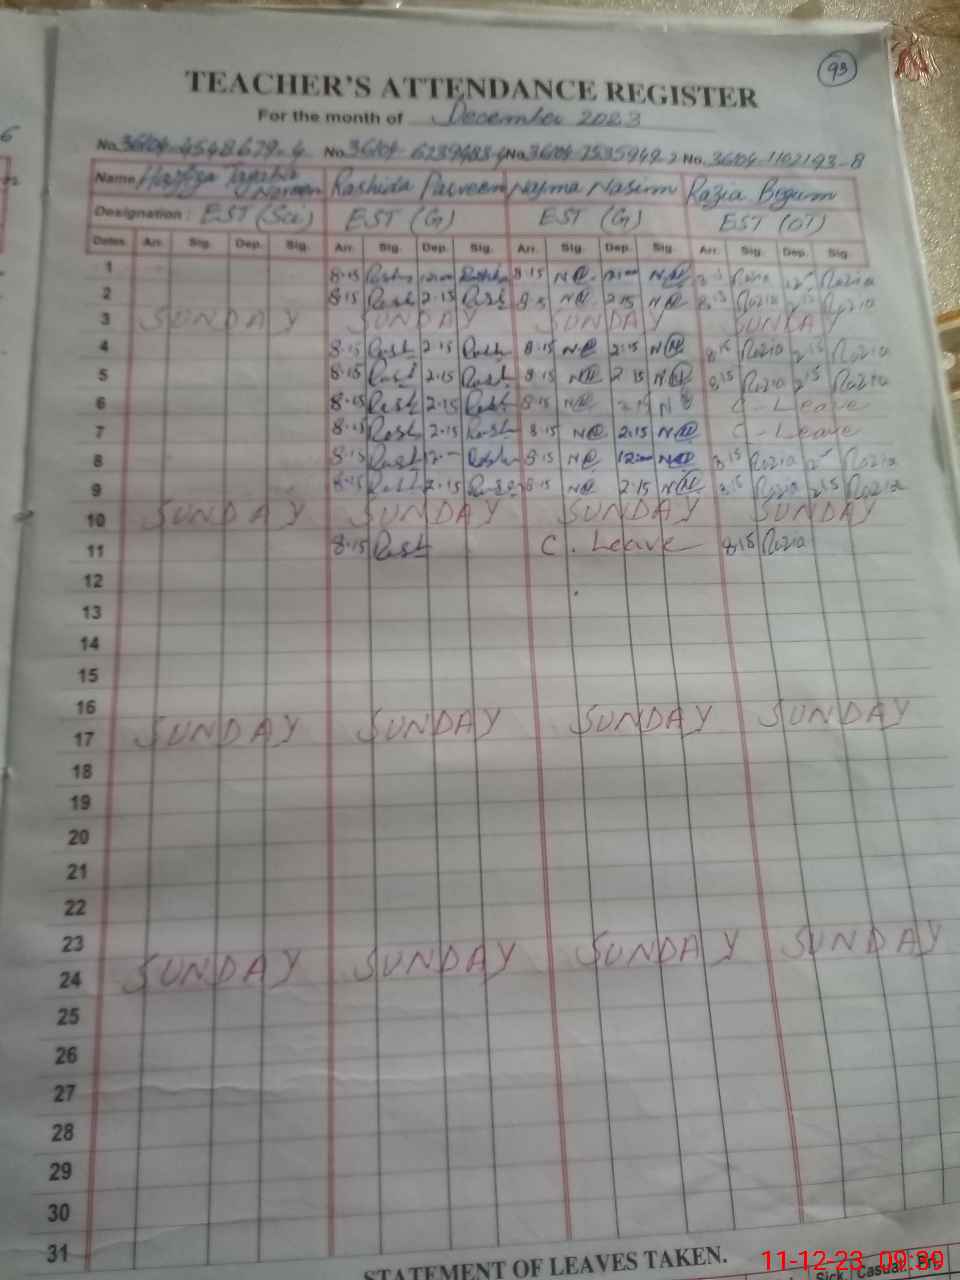 93
TEACHER'S ATTENDANCE REGISTER
For the month of December 2023
No. 36104-4548629-4 No 36104-6239483-4 No 36104-2535949-2 No. 36104-1102193-8
Name Hafiza Rashida Parveen Najma Nasim Razia Begum
Designation: EST (Sci) EST (G) EST (G) EST (OT)
Dates Arr. Sig. Dep. Sig. Arr. Sig. Dep. Sig. Arr. Sig. Dep. Sig. Arr. Sig. Dep. Sig.
1 8.15 8.15 Razia
2 8.15 Rash 2.15 Rash 2.15 8.15 Razia 2.15 Razia
3 SUNDAY SUNDAY SUNDAY SUNDAY
4 8.15 Rash 2.15 Rash 8.15 2.15 8.15 Razia 2.15 Razia
5 8.15 Rash 2.15 Rash 8.15 2.15 8.15 Razia 2.15 Razia
6 8.15 Rash 2.15 Rash 8.15 C - Leave
7 8.15 Rash 2.15 Rash 8.15 2.15 C - Leave
8 8.15 Rash 8.15 8.15 Razia Razia
9 8.15 2.15 8.15 2.15 8.15 Razia 2.15 Razia
10 SUNDAY SUNDAY SUNDAY SUNDAY
11 8.15 Rash C. Leave 8.15 Razia
12
13
14
15
16
17 SUNDAY SUNDAY SUNDAY SUNDAY
18
19
20
21
22
23
24 SUNDAY SUNDAY SUNDAY SUNDAY
25
26
27
28
29
30
31
STATEMENT OF LEAVES TAKEN.
11-12-23 09:39
Sick Casual Pri